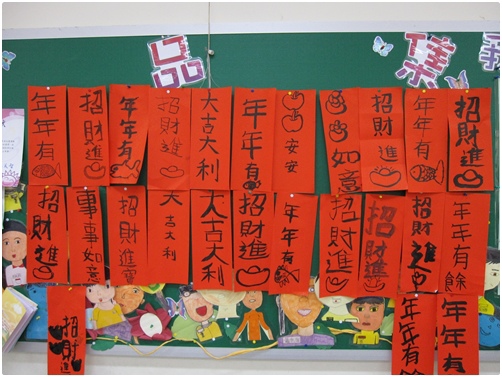 品
年年有
招財進
年年有
招財進
大吉大利
年年有
安安
如意
招財進
年年有
招財進
招財進
事事如意
招財進寶
大吉大利
大吉大利
招財進
年年有
招財進
招財進
招財進
年年有餘
招財進
年年有
年年有